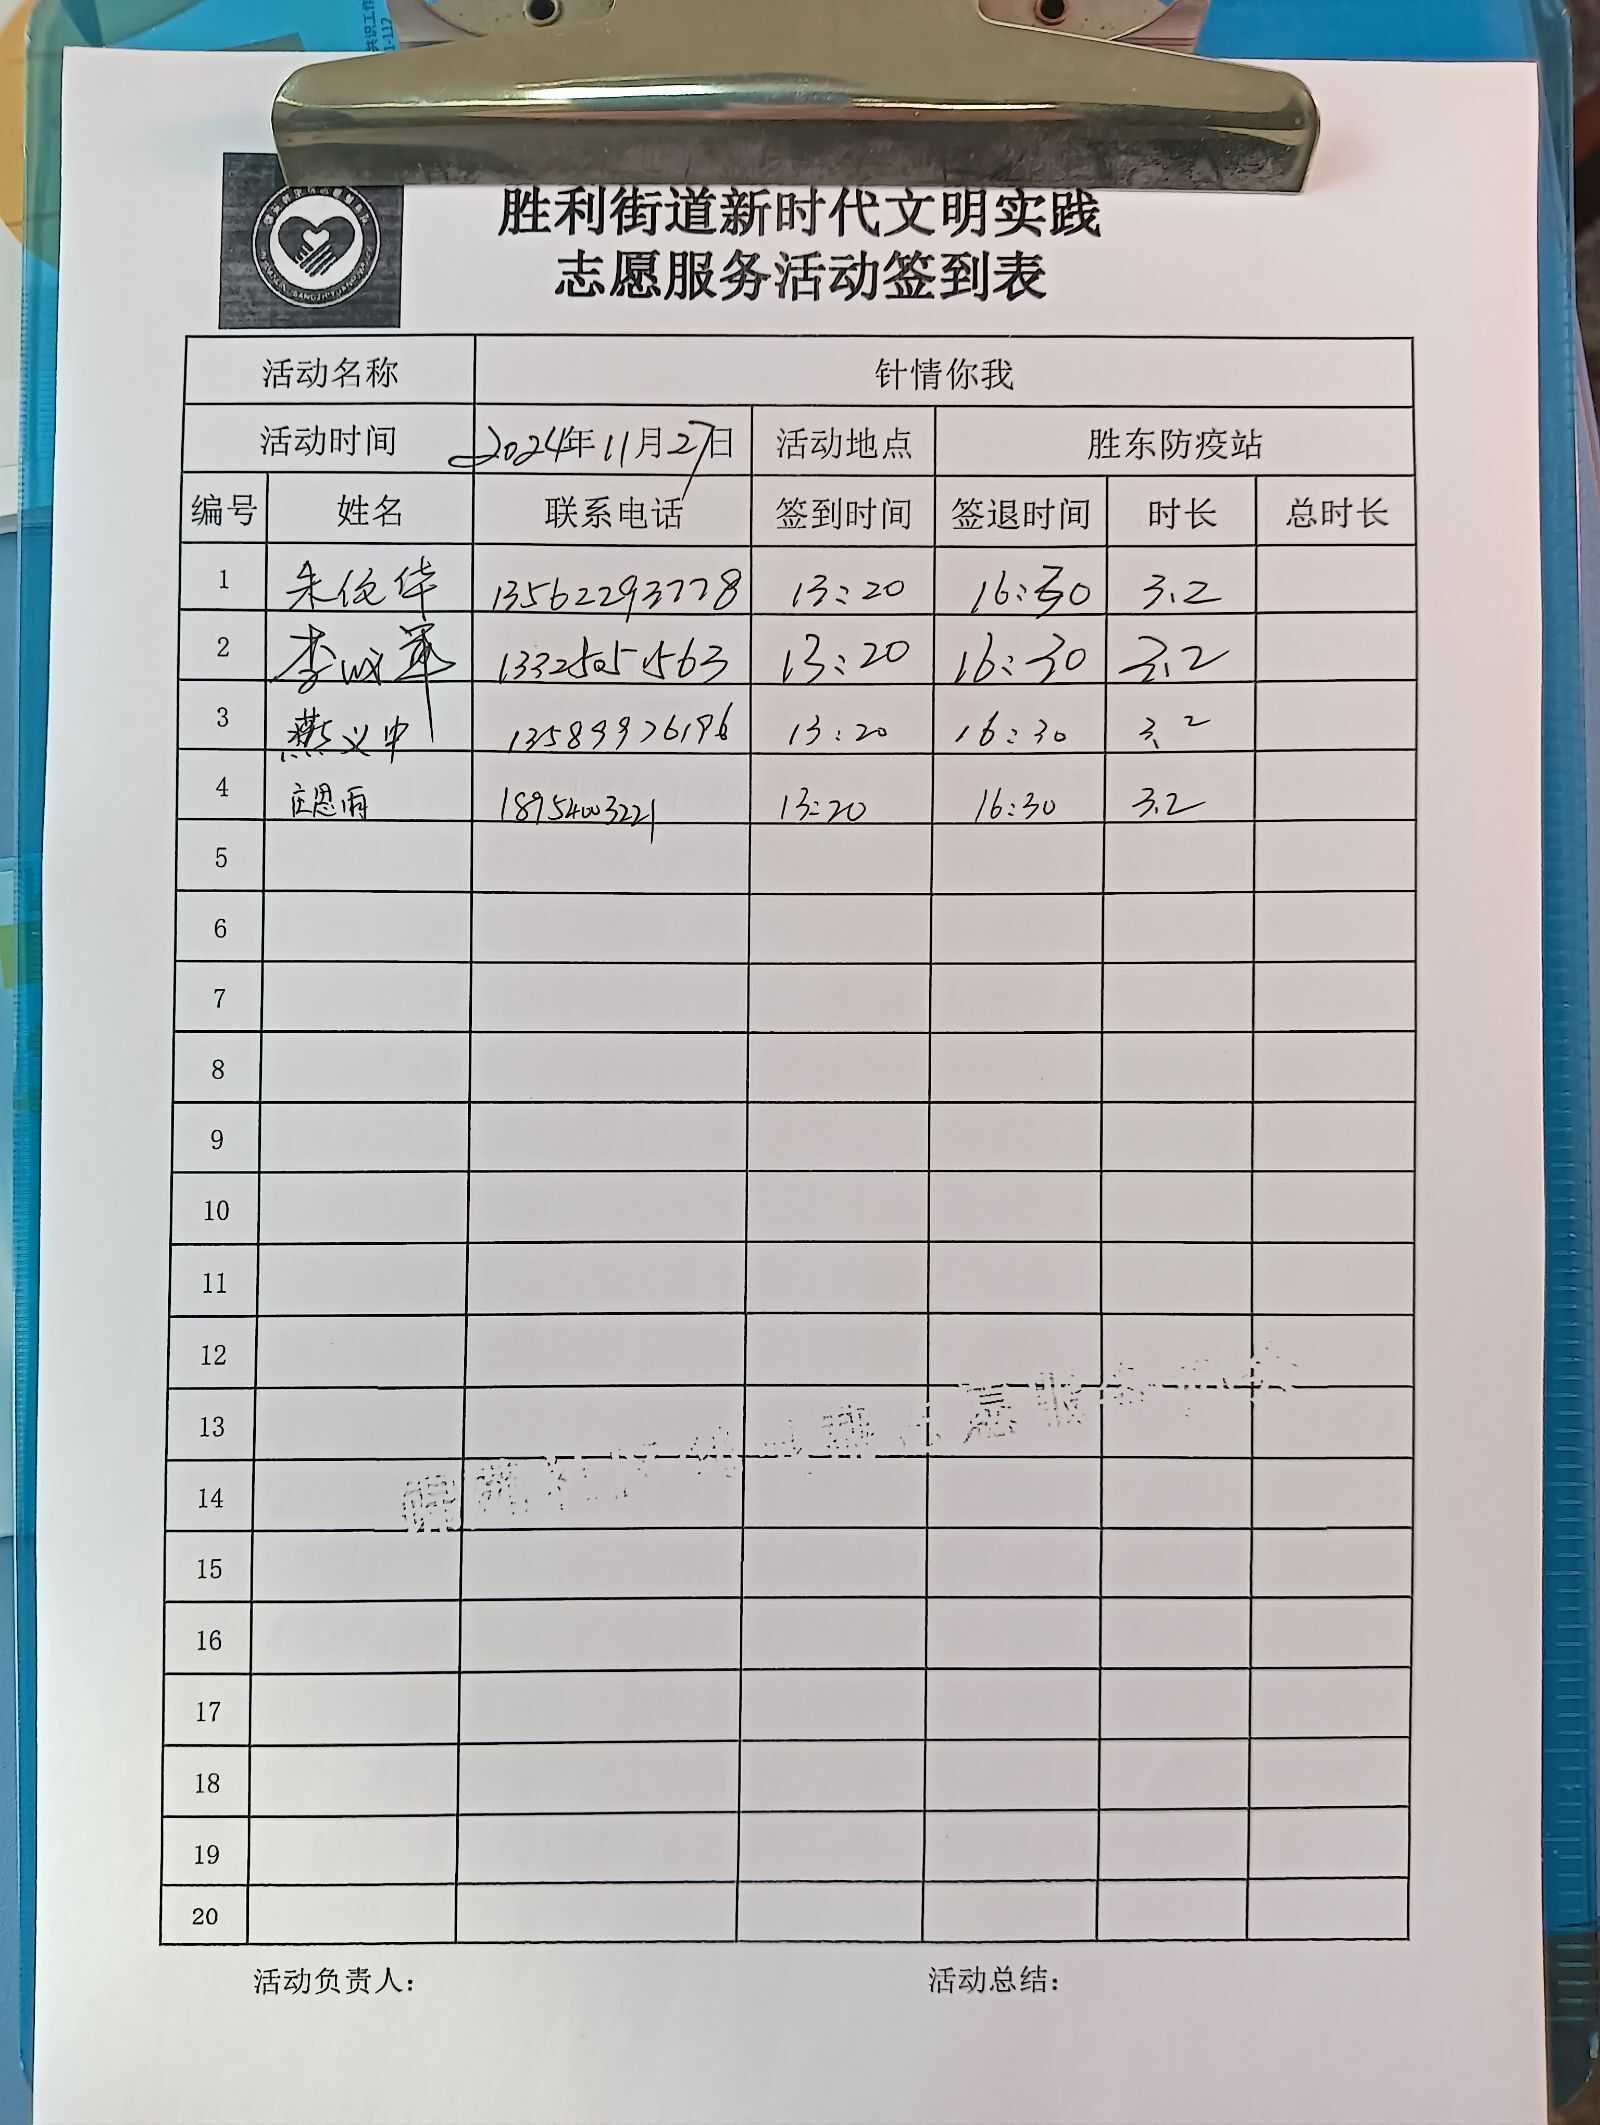 共识工作
1-117
胜利街道新时代文明实践
志愿服务活动签到表
活动名称 针情你我
活动时间 2024年11月27日 活动地点 胜东防疫站
编号 姓名 联系电话 签到时间 签退时间 时长 总时长
1 朱俊华 13562293778 13:20 16:30 3.2
2 李成军 13325051563 13:20 16:30 3.2
3 燕义中 13589976196 13:20 16:30 3.2
4 庄恩雨 18954003221 13:20 16:30 3.2
5
6
7
8
9
10
11
12
13
14
15
16
17
18
19
20
活动负责人： 活动总结：